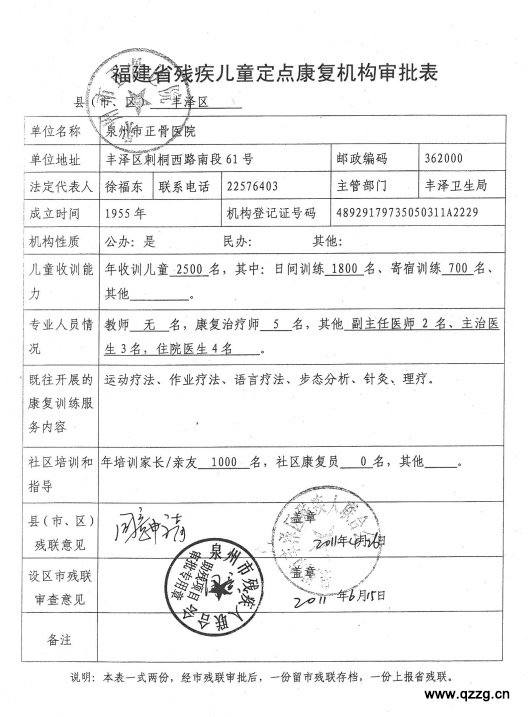 福建省残疾儿童定点康复机构审批表
县（市、区） 丰泽区
单位名称 泉州市正骨医院
单位地址 丰泽区刺桐西路南段 61 号 邮政编码 362000
法定代表人 徐福东 联系电话 22576403 主管部门 丰泽卫生局
成立时间 1955 年 机构登记证号码 48929179735050311A2229
机构性质 公办：是 民办： 其他：
儿童收训能力 年收训儿童 2500 名，其中：日间训练 1800 名、寄宿训练 700 名、
其他 。
专业人员情况 教师 无 名，康复治疗师 5 名，其他 副主任医师 2 名、主治医
生 3 名，住院医生 4 名 。
既往开展的康复训练服务内容 运动疗法、作业疗法、语言疗法、步态分析、针灸、理疗。
社区培训和指导 年培训家长/亲友 1000 名，社区康复员 0 名，其他 。
县（市、区）残联意见 同意申请 盖章
2011年4月26日
设区市残联审查意见 盖章
2011 年6月15日
泉州市残疾人联合会
助残项目
审批专用章
备注
说明：本表一式两份，经市残联审批后，一份留市残联存档，一份上报省残联。
www.qzzg.cn